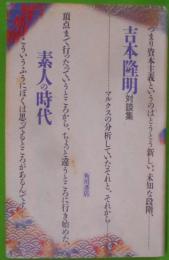 つまり資本主義というのはとうとう新しい、未知な段階、
吉本隆明対談集
マルクスの分析していたそれと、それから
頂点まで行ったっていうところから、ちょっと違うところに行き始めた、
素人の時代
角川書店
そういうふうにぼくは思ってるところがあるんですよ